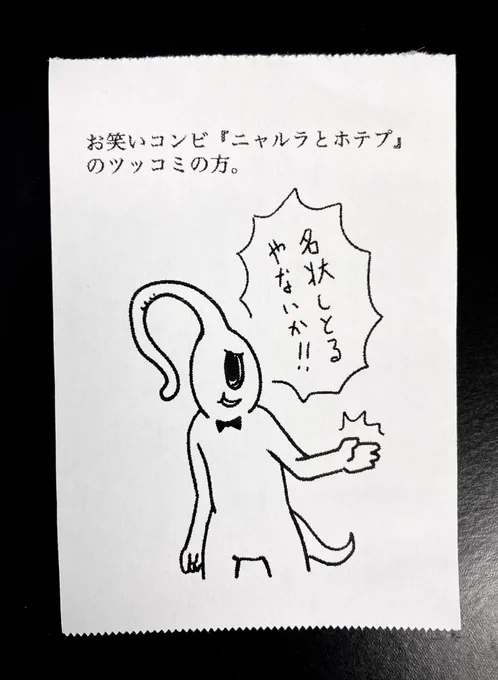 お笑いコンビ『ニャルラとホテプ』
のツッコミの方。
名状しとる
やないか!!